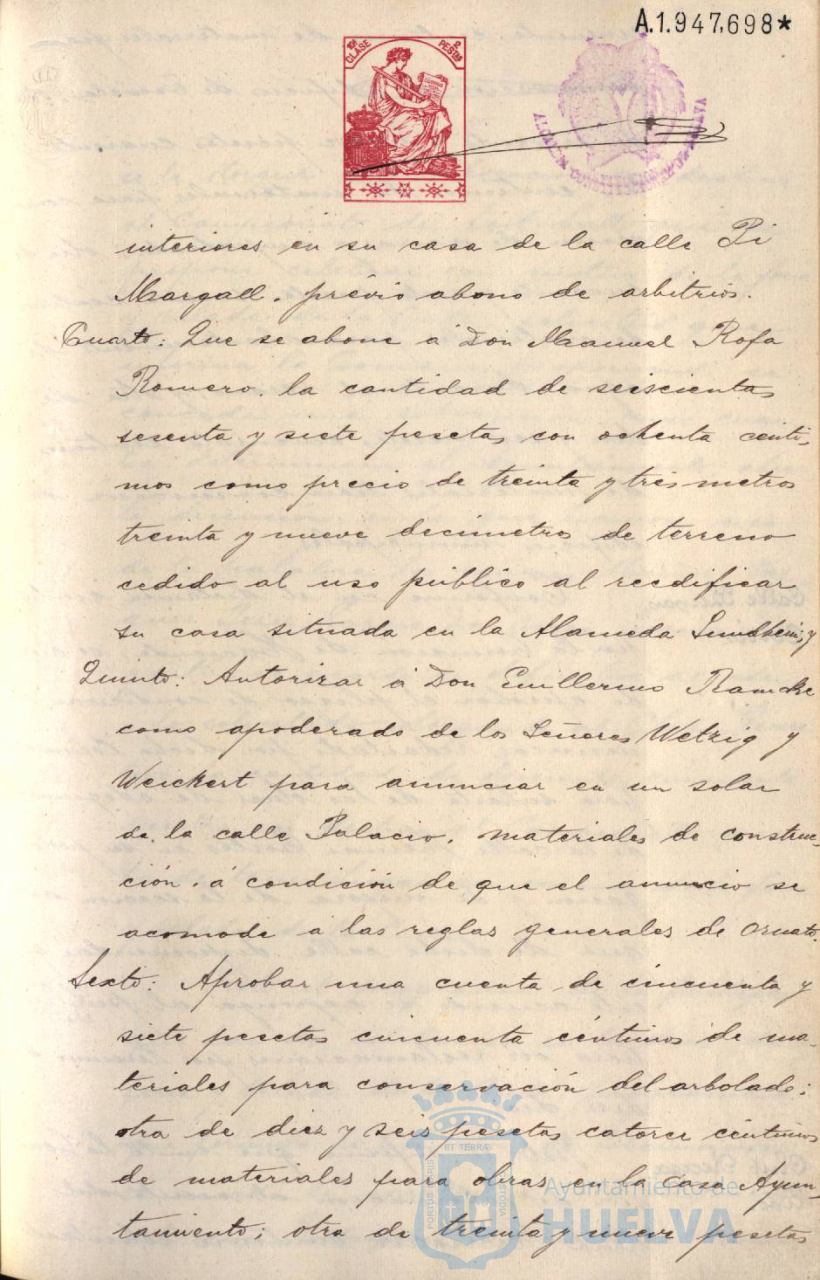 A.1.947,698*
10ª CLASE 2 PESTAS
interiores en su casa de la calle Pi
Margall, prévio abono de arbitrios.
Cuarto: Que se abone á Don Manuel Rofa
Romero, la cantidad de seiscientas
sesenta y siete pesetas con ochenta centi-
mos como precio de treinta y tres metros
treinta y nueve decimetros de terreno
cedido al uso público al reedificar
su casa situada en la Alameda Sundheim, y
Quinto: Autorizar á Don Guillermo
como apoderado de los Señores Wetzig y
Weickert para anunciar en un solar
de la calle Palacio, materiales de construc-
ción, á condición de que el anuncio se
acomode a las reglas generales de ornato.
Sexto: Aprobar una cuenta de cincuenta y
siete pesetas cincuenta céntimos de ma-
teriales para conservación del arbolado;
otra de diez y seis pesetas catorce céntimos
de materiales para obras en la Casa Ayun-
tamiento; otra de treinta y nueve pesetas
Ayuntamiento de
HUELVA